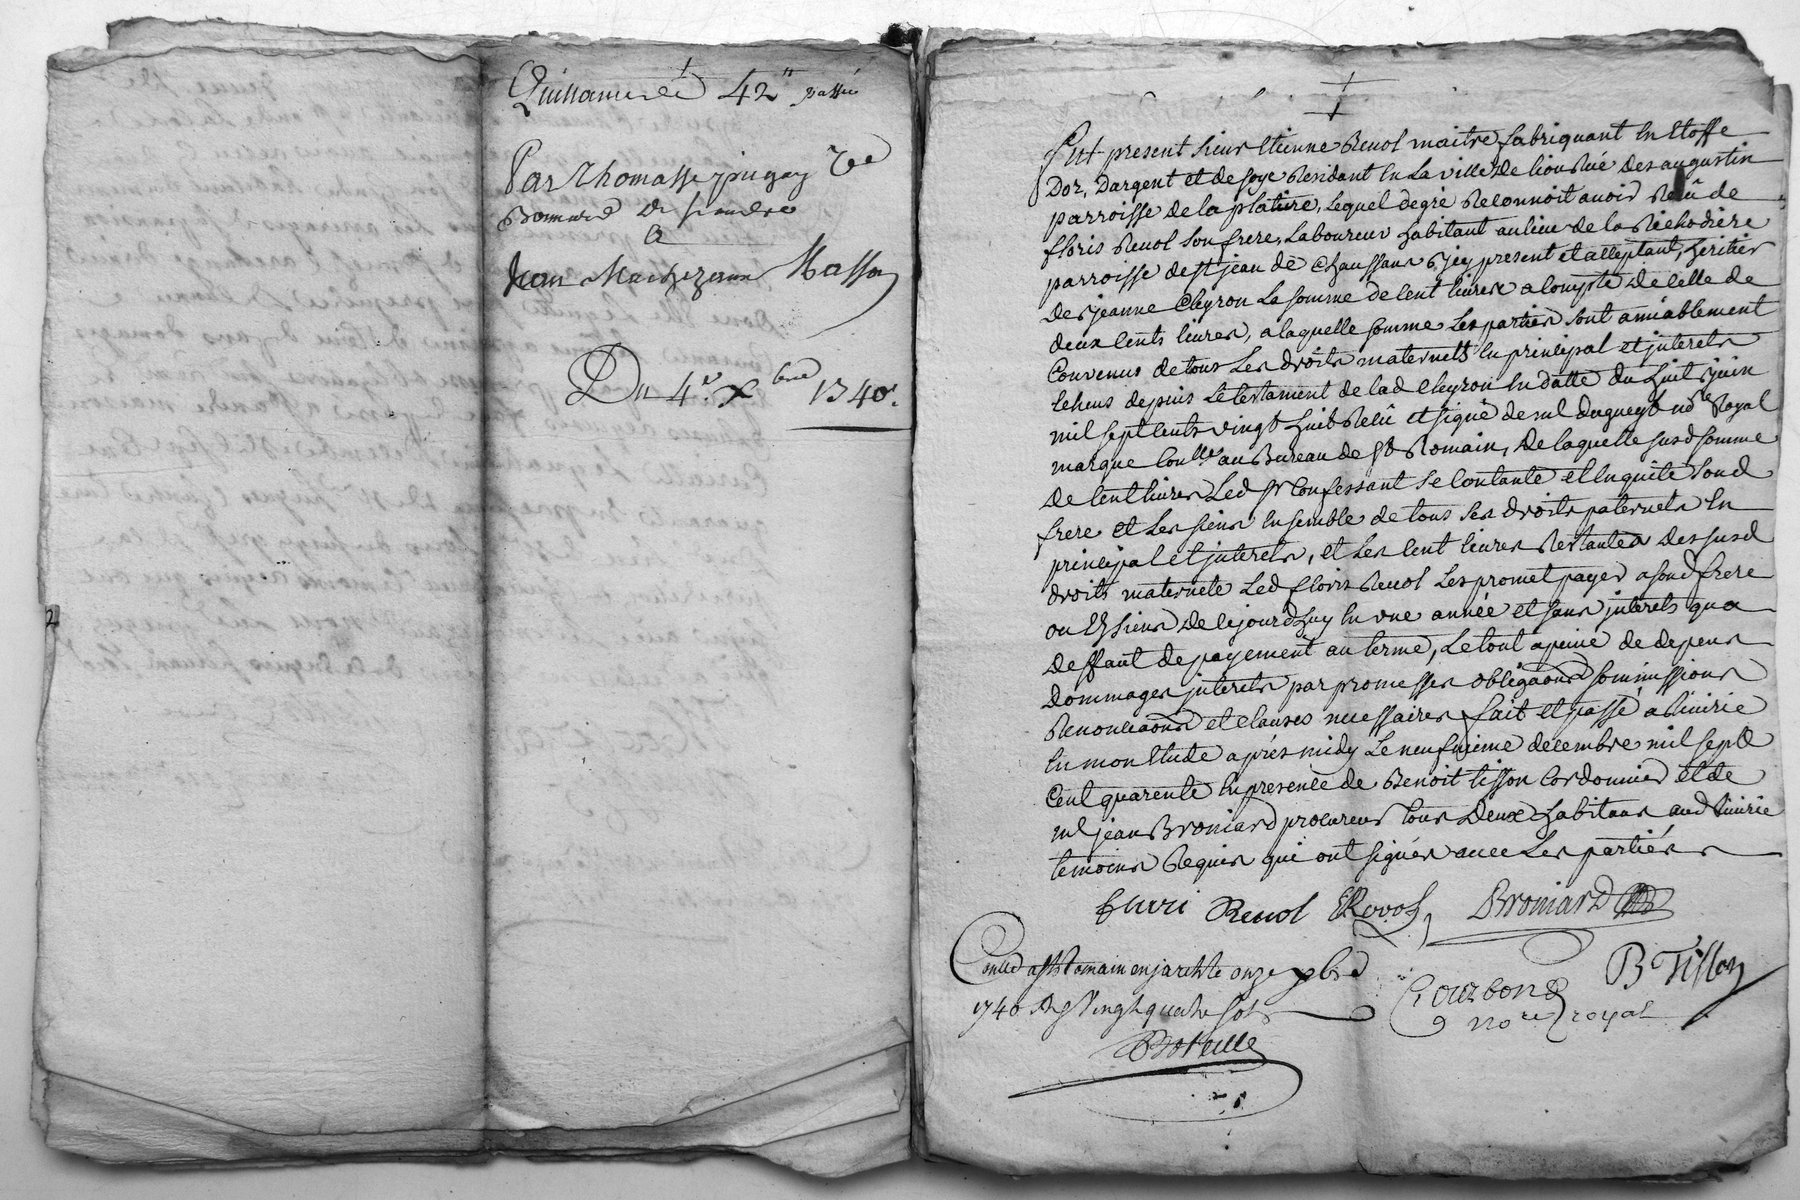 Quittance de 42ᵗᵗ passée
Par Thomasse pugay vᵉ
Bonnard
A
Jean Masson
Du 4ᵉ Xbre 1740.
2
Fut present sieur Etienne Revol maitre fabriquant en Etoffe
Dor, Dargent et de soye Residant en la ville de lion Rüe des augustin
parroisse de la platiere, lequel de gré Reconnoit avoir Reçû de
floris Revol son frere, Laboureur habitant au lieu de la Richodiere
parroisse de st jean de Chaussan icy present et acceptant, heritier
de jeanne Cleyron la somme de Cent livres acompte de Celle de
deux Cents livres, a laquelle somme les parties sont amiablement
Convenus de tous les droits maternels en principal et interets
leheus depuis le testament de lad Cleyron en datte du huit juin
mil sept cents vingt huit Reçû et signé de me dugueyt nore Royal
marque Conllé au Bureau de St Romain, de laquelle susd somme
de Cent livres led sr Confessant se Contante et en quite sond
frere et les siens ensemble de tous ses droits paternels en
principal et interets, et les Cent livres Restantes des susd
droits maternels led floris Revol les promet payer a sond frere
ou Es siens de cejourdhuy en une année et sans interets qua
deffaut de payement au terme, Le tout a peine de depens
Dommages interets par promesses obligãons soummissions
Renonciãons et clauses necessaires fait et passé a Riverie
En mon Etude aprés midy Le neufvieme decembre mil sept
Cent quarente En presence de Benoit tisson Cordonnier et de
me jean Broniard procureur tous Deux habitans aud Riverie
temoins Requis qui ont signés avec Les partiés
fluri Revol ERevol Broniard
Conllé a St Romain en jarelste onze xbre
1740 Reçu Vingt quatre sols
B Tisson
Courbon
nore royal